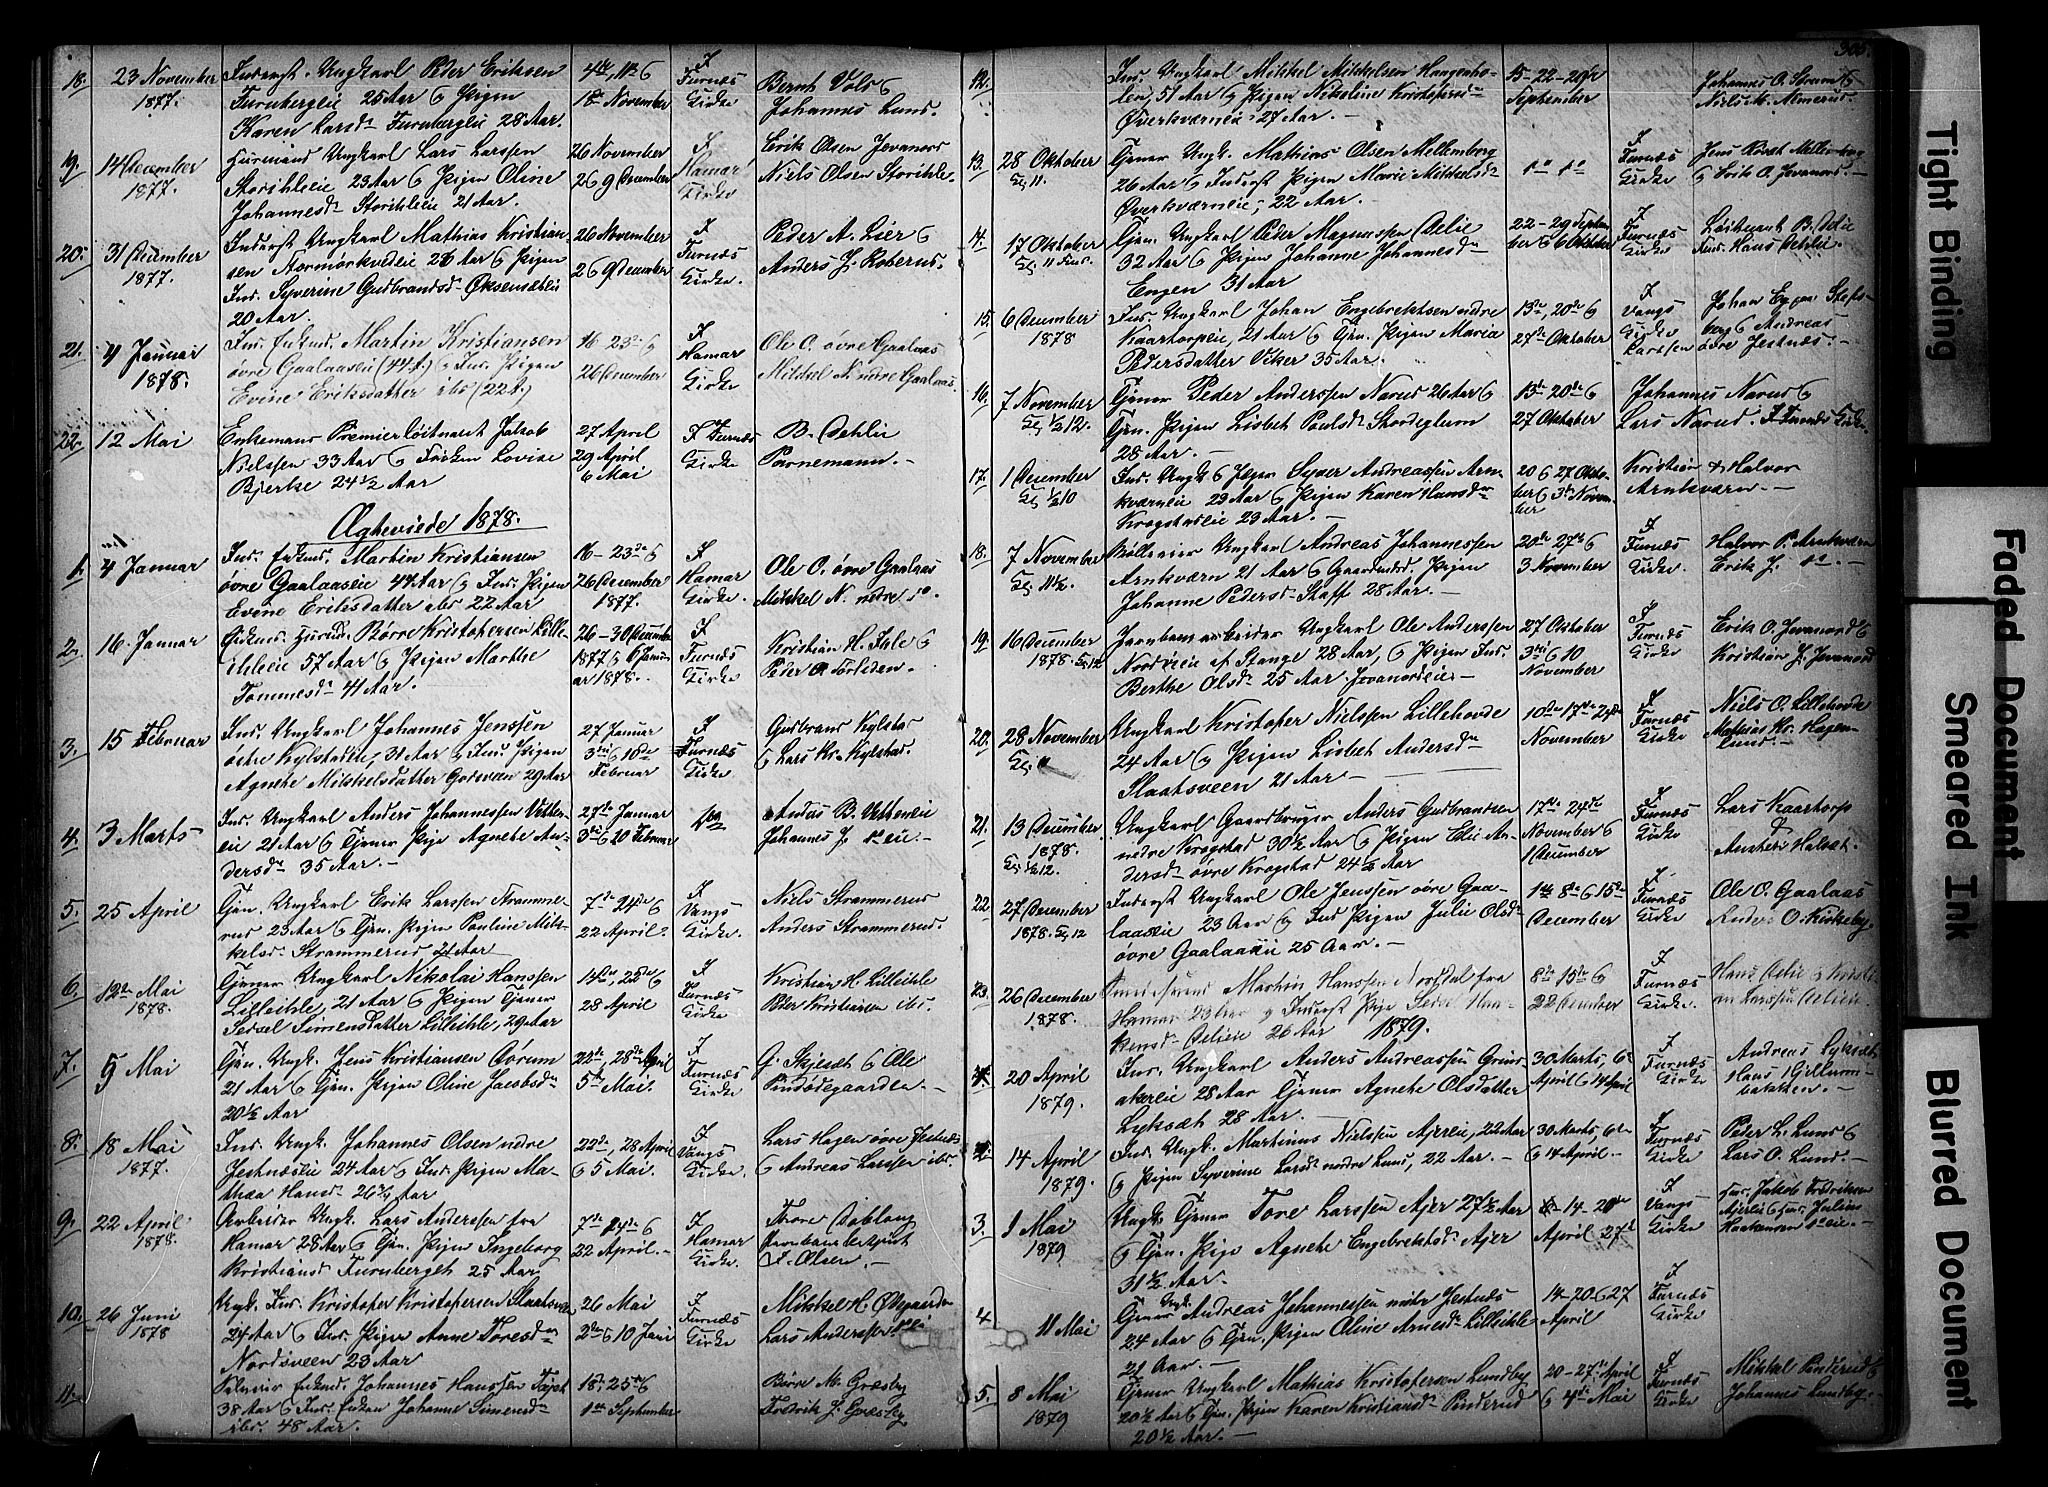 18. 23 November 1877. Inderst. Ungkarl Peder Eriksen
Furubergeie 25 Aar & Pigen
Karen Larsdr Furubergeie 28 Aar.
4de, 11te &
18de November
I
Furnæs
Kirke
Bernt Vold &
Johannes Lund.
19. 14 December 1877. Husmand Ungkarl Lars Larssen
Storihleeie 23 Aar & Pigen Oline
Johannesdr Storihleeie 21 Aar.
26 November
2 & 9 December
I
Hamar
Kirke
Erik Olsen Jevanord
Niels Olsen Storihle.
20. 31 December 1877. Inderst Ungkarl Mathias Kristian-
sen 26 Aar & Pigen
Ind. Syverine Gudbrandsdr
20 Aar.
26 November
2 & 9 December
I
Furnæs
Kirke.
Peder A. Lier &
Anders J. Roberud.
21. 4 Januar 1878. Ind. Enkmd. Martin Kristiansen
øvre Gaalaaseie (44 A.) & Ind. Pigen
Evine Eriksdatter ibd (22 A.)
16-23de &
26 December
I
Hamar
Kirke
Ole O. øvre Gaalaas
Mikkel N. nedre Gaalaas.
22. 12 Mai
Enkemand Premierløitnant Jakob
Nielssen 33 Aar & Frøken Lovise
Bjerke 24 1/2 Aar
27 April
29 April
6 Mai
I Furnæs
Kirke.
B. Dehlie
Parnemann.
Ægteviede 1878.
1. 4 Januar
Ind. Enkmd. Martin Kristiansen
øvre Gaalaaseie 44 Aar & Ind. Pigen
Evine Eriksdatter ibd 22 Aar
16-23de &
26 December
1877.
I
Hamar
Kirke.
Ole O. øvre Gaalaas
Mikkel N. nedre do.
2. 16 Januar
Børre Kristofersen Lille-
ihleeie 57 Aar & Pigen Marthe
Tommesdr 41 Aar.
26-30 December
1877 & 6 Janu-
ar 1878.
I
Furnæs
Kirke
Kristian H. Ihle &
Peder O.
3. 15 Februar
Ind. Ungkarl Johannes Jenssen
østre Kylstadeie, 31 Aar & Ind. Pigen
Agnethe Mikkelsdatter Godsveen 29 Aar
27 Januar
3die & 10de
Februar
I
Furnæs
Kirke
Gudbrand Kylstad
& Lars Kr. Kylstad.
4. 3 Marts
Ind. Ungkarl Anders Johannessen Vette-
eie 21 Aar & Tjener Pige Agnethe An-
dersdr 35 Aar.
27de Januar
3die & 10 Februar
do
Andas B. Vetteneie
Johannes J. do eie.
5. 25 April
Tjen. Ungkarl Erik Larssen Stramme-
rud 23 Aar & Tjen. Pigen Pauline Mik-
kelsdr Strammerud 21 Aar
7de 14de &
22 April.
I
Vangs
Kirke.
Niels Strammerud
Anders Strammerud.
6. 12te Mai 1878.
Tjener Ungkarl Nikolai Hanssen
Lilleihle, 21 Aar & Pigen Tjener
Sedsel Simensdatter Lilleihle, 29 Aar
14de, 22de &
28 April
I
Furnæs
Kirke.
Kristian H. Lilleihle
Peder Kristiansen ibd.
7. 5 Mai
Tjen. Ungk. Jens Kristiansen
21 Aar & Tjen. Pigen Oline Jacobsdr
20 1/2 Aar
22de, 28de April
5te Mai.
I
Furnæs
Kirke.
G. Skjeset & Ole
8. 18 Mai 1877.
Ind. Ungk. Johannes Olsen nedre
Jestnæseie 24 Aar & Ind. Pigen Ma-
thea Hansdr 26 3/4 Aar
22de, 28 April
& 5 Mai.
I
Vangs
Kirke.
Lars Hagen øvre Jestnæs
& Andreas Larssen ibd.
9. 22 April 1878.
Arbeider Ungk. Lars Anderssen fra
Hamar 28 Aar & Tjen. Pigen Ingeborg
Kristiansdr Furuberget 25 Aar
7de 14de &
22 April.
I
Hamar
Kirke.
Thore Dobloug
F. Olsen.
10. 26 Juni 1878
Ungk. Ind. Kristofer Kristofersen Slaatsveen
24 Aar & Ind. Pigen Anne Toresdr
Nordsveen 23 Aar
26 Mai
2den & 10 Juni
I
Furnæs
Kirke
Mikkel H. Ødegaarden
Lars Anderssen
11.
Enkmd. Johannes Hanssen
38 Aar & Ind. Enken Johanne Simensdr
ibd. 48 Aar.
18de, 25de &
1ste September
Børre M. Græsby
Fredrik J. Græsby
305.
12.
Ind. Ungkarl Mikkel Mikkelsen Haugenho-
len, 51 Aar & Pigen Nikoline Kristofersdr
Øverkværneie, 27 Aar.
15-22-29de
September
Johannes O. &
Niels M. Almerud.
13. 28 Oktober
Kl. 11.
Tjener Ungk. Mathias Olsen Mellemborg
26 Aar & Inderst Pigen Marie Mikkelsdr
Øverkværneie, 22 Aar.
do do
I
Furnæs
Kirke
Jens Mellemborg
& Erik O. Jevanord.
4. 17 Oktober
Kl. 11
Tjen. Ungkarl Peder Magnussen Delie
32 Aar & Pigen Johanne Johannesdr
Engen 31 Aar
22-29 Septem-
ber & 6 Oktober
I
Furnæs
Kirke
Løitnant B. Delie
Ind. Hans Dehlie.
15. 6 December 1878
Ind. Ungkarl Johan Engebretsen nedre
Kaartorpeie, 21 Aar & Tjn. Pigen Maria
Pedersdatter Viker 35 Aar.
13de, 20de &
27de Oktober
I
Vangs
Kirke
Johan Staffs-
berg & Andreas
øvre Jestnæs.
16. 7 November
Kl. 1/2 12.
Tjener Peder Anderssen Narud 26 Aar &
Tjen. Pigen Lisbet Paulsdr Skordeglum
28 Aar.
13de 20de &
27 Oktober
Johannes Narud &
Lars Narud. I Furnæs Kirke.
17. 1 December
Kl. 1/2 10
Ind. Ungk. Syver Andreassen Arn-
kværneie 22 Aar & Pigen Karen Hansdr
Krogstadeie 23 Aar.
20 & 27 Okto-
ber & 3de Novem-
ber
Kristian & Halvor
Arnkværn.
18. 7 November
Kl. 11 1/2.
Ungkarl Andreas Johannessen
Arnkværn 21 Aar & Pigen
Johanne Pedersdr Staff 28 Aar.
20de 27de &
3 November
I
Furnæs
Kirke.
Halvor P. Arnkværn
Erik J. do.
19. 16 December
1878. Kl. 12
Jernbanearbeider Ungkarl Ole Anderssen
af Stange 28 Aar, & Pigen Ind.
Berthe Olsdr 25 Aar Jevanordeie
27 Oktober
3die & 10
November
I
Furnæs
Kirke
Erik O. Jevanord &
Kristian J. Jevanord
20. 28 November
Kl. 11
Ungkarl Kristofer Nielssen Lillehovde
24 Aar & Pigen Lisbet Andersdr
Slaatsveen 21 Aar
10de 17de 24de
November
I
Furnæs
Kirke
Niels O. Lillehovde
Mathias Kr. Hagen-
lund.
21. 13 December
1878.
Kl. 1/2 12.
Ungkarl Gaardbruger Anders Gudbrandsen
nedre Krogstad 30 1/2 Aar & Pigen Eli An-
dersdr øvre Krogstad 24 1/2 Aar
17de 24de
November &
1 December
I
Furnæs
Kirke
Lars Kaartorp
&
22 27 December
1878. Kl. 12
Inderst Ungkarl Ole Jenssen øvre Gaa-
laaseie 23 Aar & Ind Pigen Julie Olsdr
øvre Gaalaaseie 25 Aar.
1ste 8de & 15de
December
I
Furnæs
Kirke
Ole O. Gaalaas
Anders O. Kirkeby.
23. 26 December
1878.
Martin Hanssen fra
Hamar 23 Aar & Inderst Pige Sedsel Haa-
kensdr Delieie 26 Aar
8de 15de &
22 December
I
Furnæs
Kirke.
Hans Delie & Kristi-
an Larssen Delieie.
1879.
1. 20 April
1879.
Ind. Ungkarl Anders Andreassen Grind-
akereie 28 Aar Tjener Agnethe Olsdatter
Lyksæt 28 Aar.
30 Marts, 6te
April & 14 April
I
Furnæs
Kirke
Andreas Lyksæt
Hans
14 April
1879.
Ind. Ungk. Martinus Nielssen Ajereie, 22 Aar
& Pigen Syverine Larsdr nedre Lund, 22 Aar.
30 Marts, 6te
& 14 April.
I
Furnæs
Kirke
Peder L. Lund &
Lars O. Lund.
3. 1 Mai
1879
Ungk. Tjener Tore Larssen Ajer 27 1/2 Aar
& Tjen. Pige Agnethe Engebretsdr Ajer
31 1/2 Aar.
14-20de
April 27de
I
Vangs
Kirke
Jakob Fredriksen
Ajereie & Ind. Julius
Haakensen do eie.
4. 11 Mai
Tjener Ungk. Andreas Johannessen nedre Jestnæs
24 Aar & Tjen. Pigen Oline Arnesdr Lilleihle
22 Aar.
14-20 & 27
April
I
Furnæs
Kirke
5. 8 Mai
1879
Tjener Ungkarl Mathias Kristofersen Lundby
20 1/2 Aar & Tjen. Pigen Karen Kristiansdr Pinderud
20 1/2 Aar.
20-27de April
& 4de Mai
I
Furnæs
Kirke
Mikkel Pinderud &
Johannes Lundby.
Tight Binding
Faded Document
Smeared Ink
Blurred Document